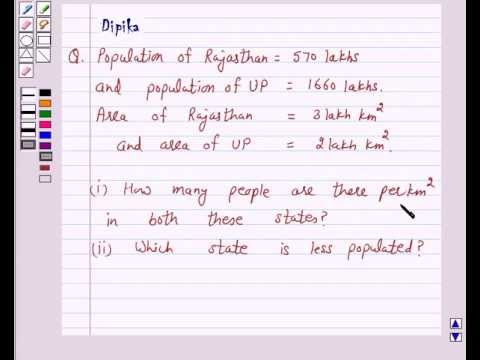 Dipika
Q. Population of Rajasthan = 570 lakhs
and population of UP = 1660 lakhs.
Area of Rajasthan = 3 lakh km²
and area of UP = 2 lakh km².
(i) How many people are there per km²
in both these states?
(ii) Which state is less populated?